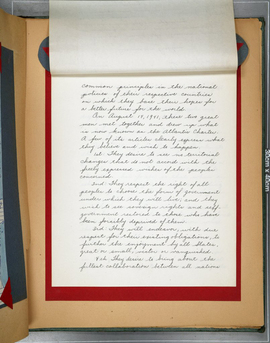 common principles in the national
policies of their respective countries
on which they base their hopes for
a better future for the world.
On August 14, 1941, these two great
men met together and drew up what
is now known as the Atlantic Charter.
A few of its articles clearly express what
they believe and wish to happen.
1st: They desire to see no territorial
changes that do not accord with the
freely expressed wishes of the peoples
concerned.
2nd: They respect the right of all
peoples to choose the form of government
under which they will live; and they
wish to see sovereign rights and self-
government restored to those who have
been forcibly deprived of them.
3rd: They will endeavor, with due
respect for their existing obligations, to
further the enjoyment by all States,
great or small, victor or vanquished.
4th: They desire to bring about the
fullest collaboration between all nations